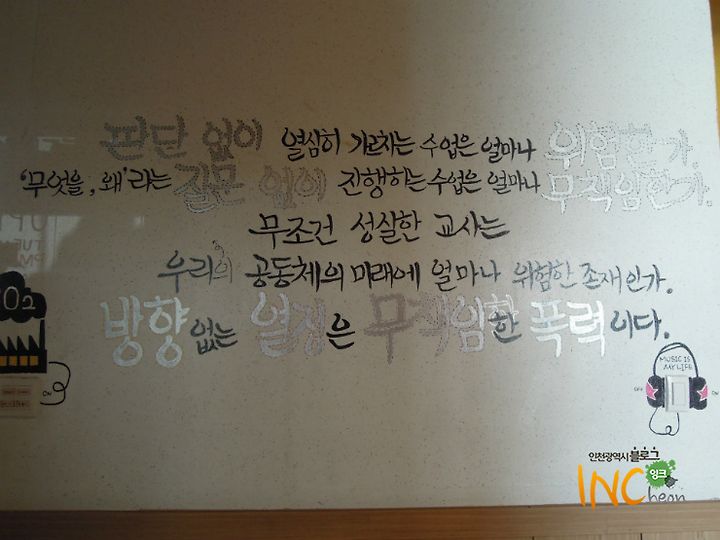 판단 없이 열심히 가르치는 수업은 얼마나 위험한가.
'무엇을, 왜'라는 질문 없이 진행하는 수업은 얼마나 무책임한가.
무조건 성실한 교사는
우리의 공동체의 미래에 얼마나 위험한 존재인가.
방향 없는 열정은 무책임한 폭력이다.
O2
ON
MUSIC IS
MY LIFE
OFF
ON
인천광역시 블로그
INCheon 잉크